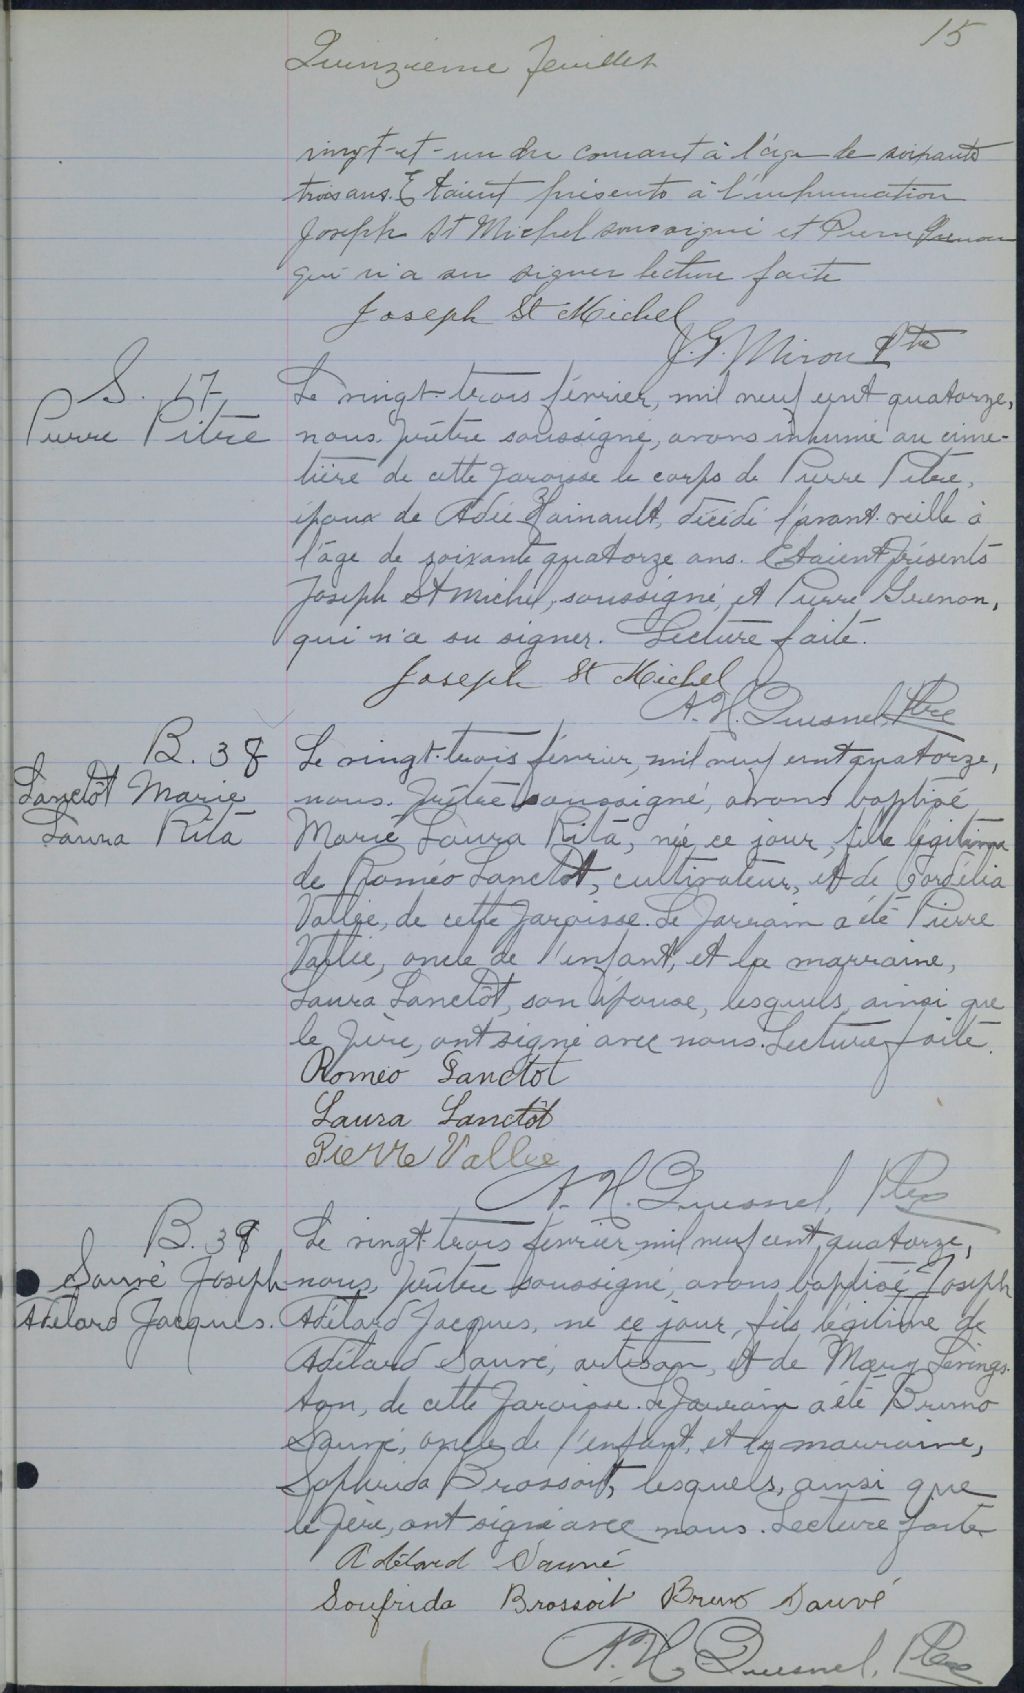 15
Quinzième feuillet
vingt-et-un du courant à l'âge de soixante
trois ans. Etaient présents à l'inhumation
Joseph St Michel soussigné et Pierre Grenon
qui n'a su signer lecture faite
Joseph St Michel
J. Miron Ptre
S. 17
Pierre Pitre
Le vingt-trois février, mil neuf cent quatorze,
nous prêtre soussigné, avons inhumé au cime-
tière de cette paroisse le corps de Pierre Pitre,
époux de Adée Hainault, décédé l'avant-veille à
l'âge de soixante quatorze ans. Etaient présents
Joseph St Michel, soussigné, et Pierre Grenon,
qui n'a su signer. Lecture faite.
Joseph St Michel
A. H. Quesnel, Ptre
B. 38
Lanctôt Marie
Laura Rita
Le vingt-trois février, mil neuf cent quatorze,
nous prêtre soussigné, avons baptisé
Marie Laura Rita, née ce jour, fille légitime
de Roméo Lanctôt, cultivateur, et de Cordélia
Vallée, de cette paroisse. Le parrain a été Pierre
Vallée, oncle de l'enfant, et la marraine,
Laura Lanctôt, son épouse, lesquels, ainsi que
le père, ont signé avec nous. Lecture faite.
Roméo Lanctôt
Laura Lanctôt
Pierre Vallée
A. H. Quesnel, Ptre
B. 39
Sauvé Joseph
Adélard Jacques.
Le vingt-trois février mil neuf cent quatorze,
nous, prêtre soussigné, avons baptisé Joseph
Adélard Jacques, né ce jour, fils légitime de
Adélard Sauvé, artisan, et de Mary Livings-
ton, de cette paroisse. Le parrain a été Bruno
Sauvé, oncle de l'enfant, et la marraine,
Sophrida Brossoit, lesquels, ainsi que
le père, ont signé avec nous. Lecture faite
Adélard Sauvé
Soufrida Brossoit Bruno Sauvé
A. H. Quesnel, Ptre